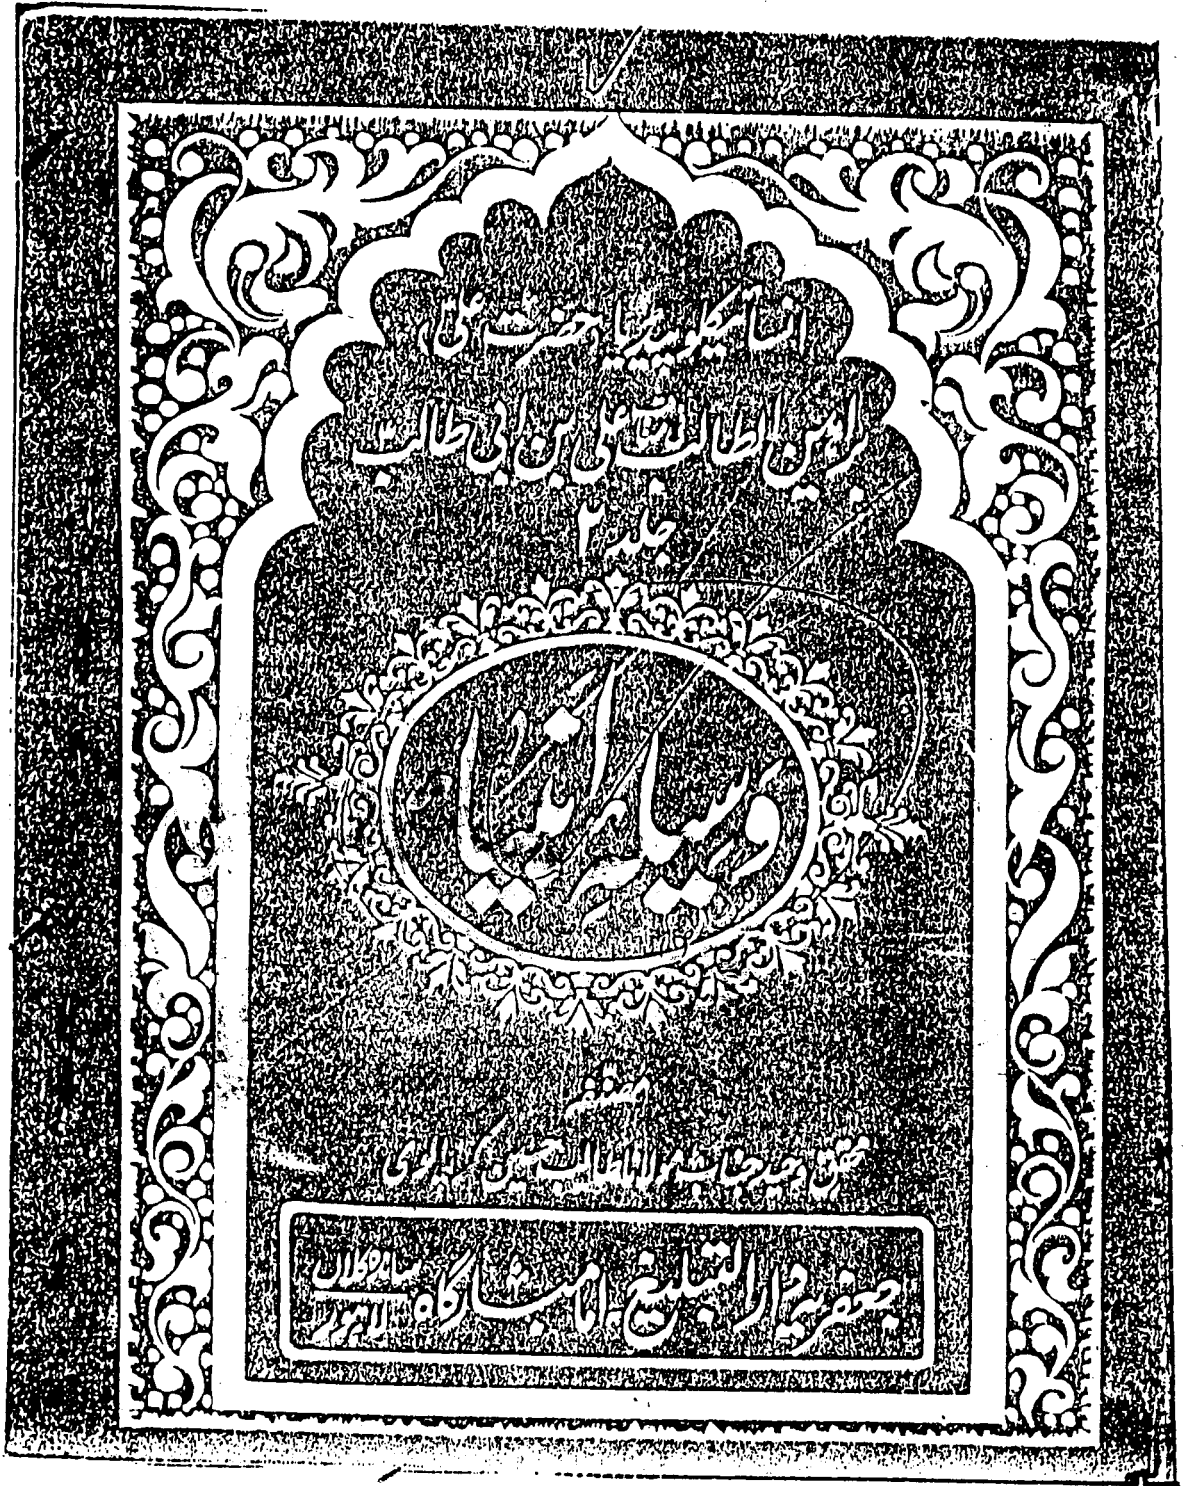 انسائیکلوپیڈیا حضرت علیؑ
براہین الطالب علی بن ابی طالبؑ
جلد ۲
وسیلہ انبیاء
مصنفہ
محقق وحید جناب مولانا طالب حسین کرپالوی
جعفریہ دار التبلیغ۔ امامبارگاہ
ساندہ کلاں
لاہور